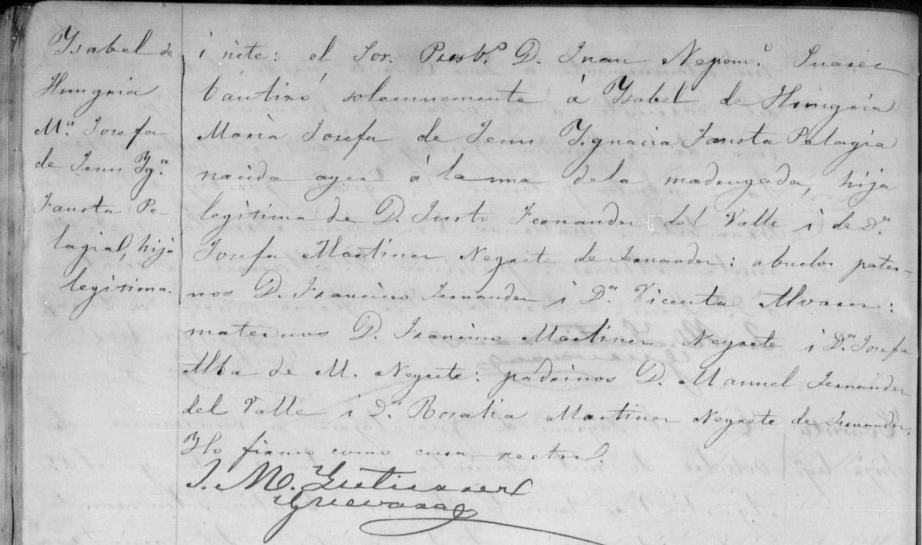 Ysabel de
Hungria
Mª. Josefa
de Jesus Ygª.
Fausta Pe-
lagia, hija
legitima.
i siete: el Sor. Presbº. D. Juan Nepomº. Suarez
bautizó solemnemente á Ysabel de Hungria
Maria Josefa de Jesus Ygnacia Fausta Pelagia
nacida ayer á la una dela madrugada, hija
legitima de D. Justo Fernandez del Valle i de Dª.
Josefa Martinez Negrete de Fernandez: abuelos pater-
nos D. Francisco Fernandez i Dª. Vicenta Alvarez:
maternos D. Francisco Martinez Negrete i Dª. Josefa
Alba de M. Negrete: padrinos D. Manuel Fernandez
del Valle i Dª. Rosalia Martinez Negrete de Fernandez.
Yo firmo como cura rector.
J. M. Gutierrez
Guevara